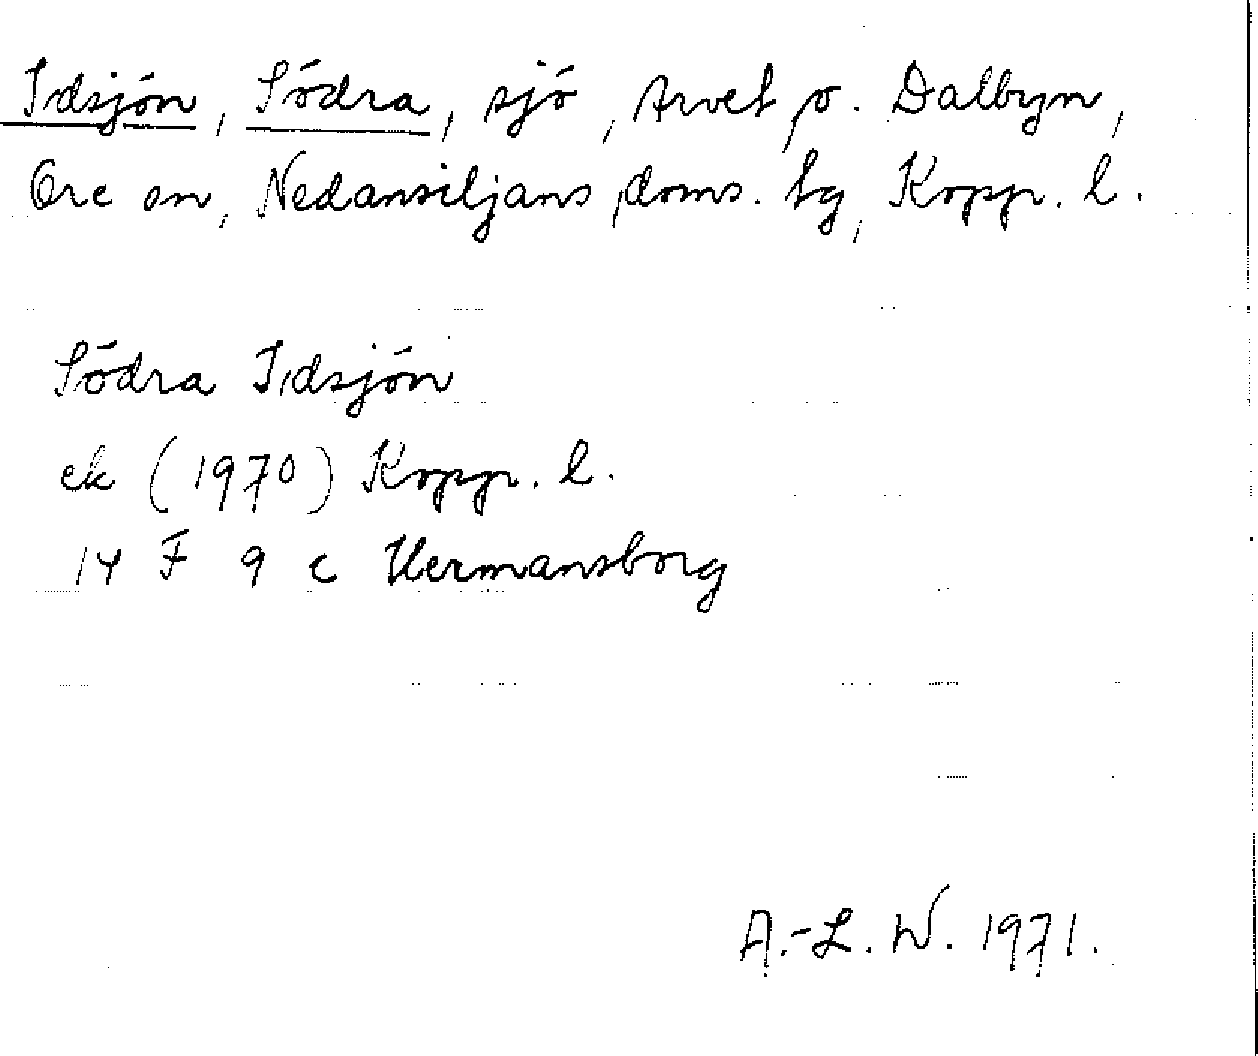 Idsjön, Södra, sjö, Arvet, o. Dalbyn,
Ore sn, Nedansiljans doms. tg, Kopp. l.
Södra Idsjön
ek (1970) Kopp. l.
14 F 9 c Hermansborg
A.-L. W. 1971.